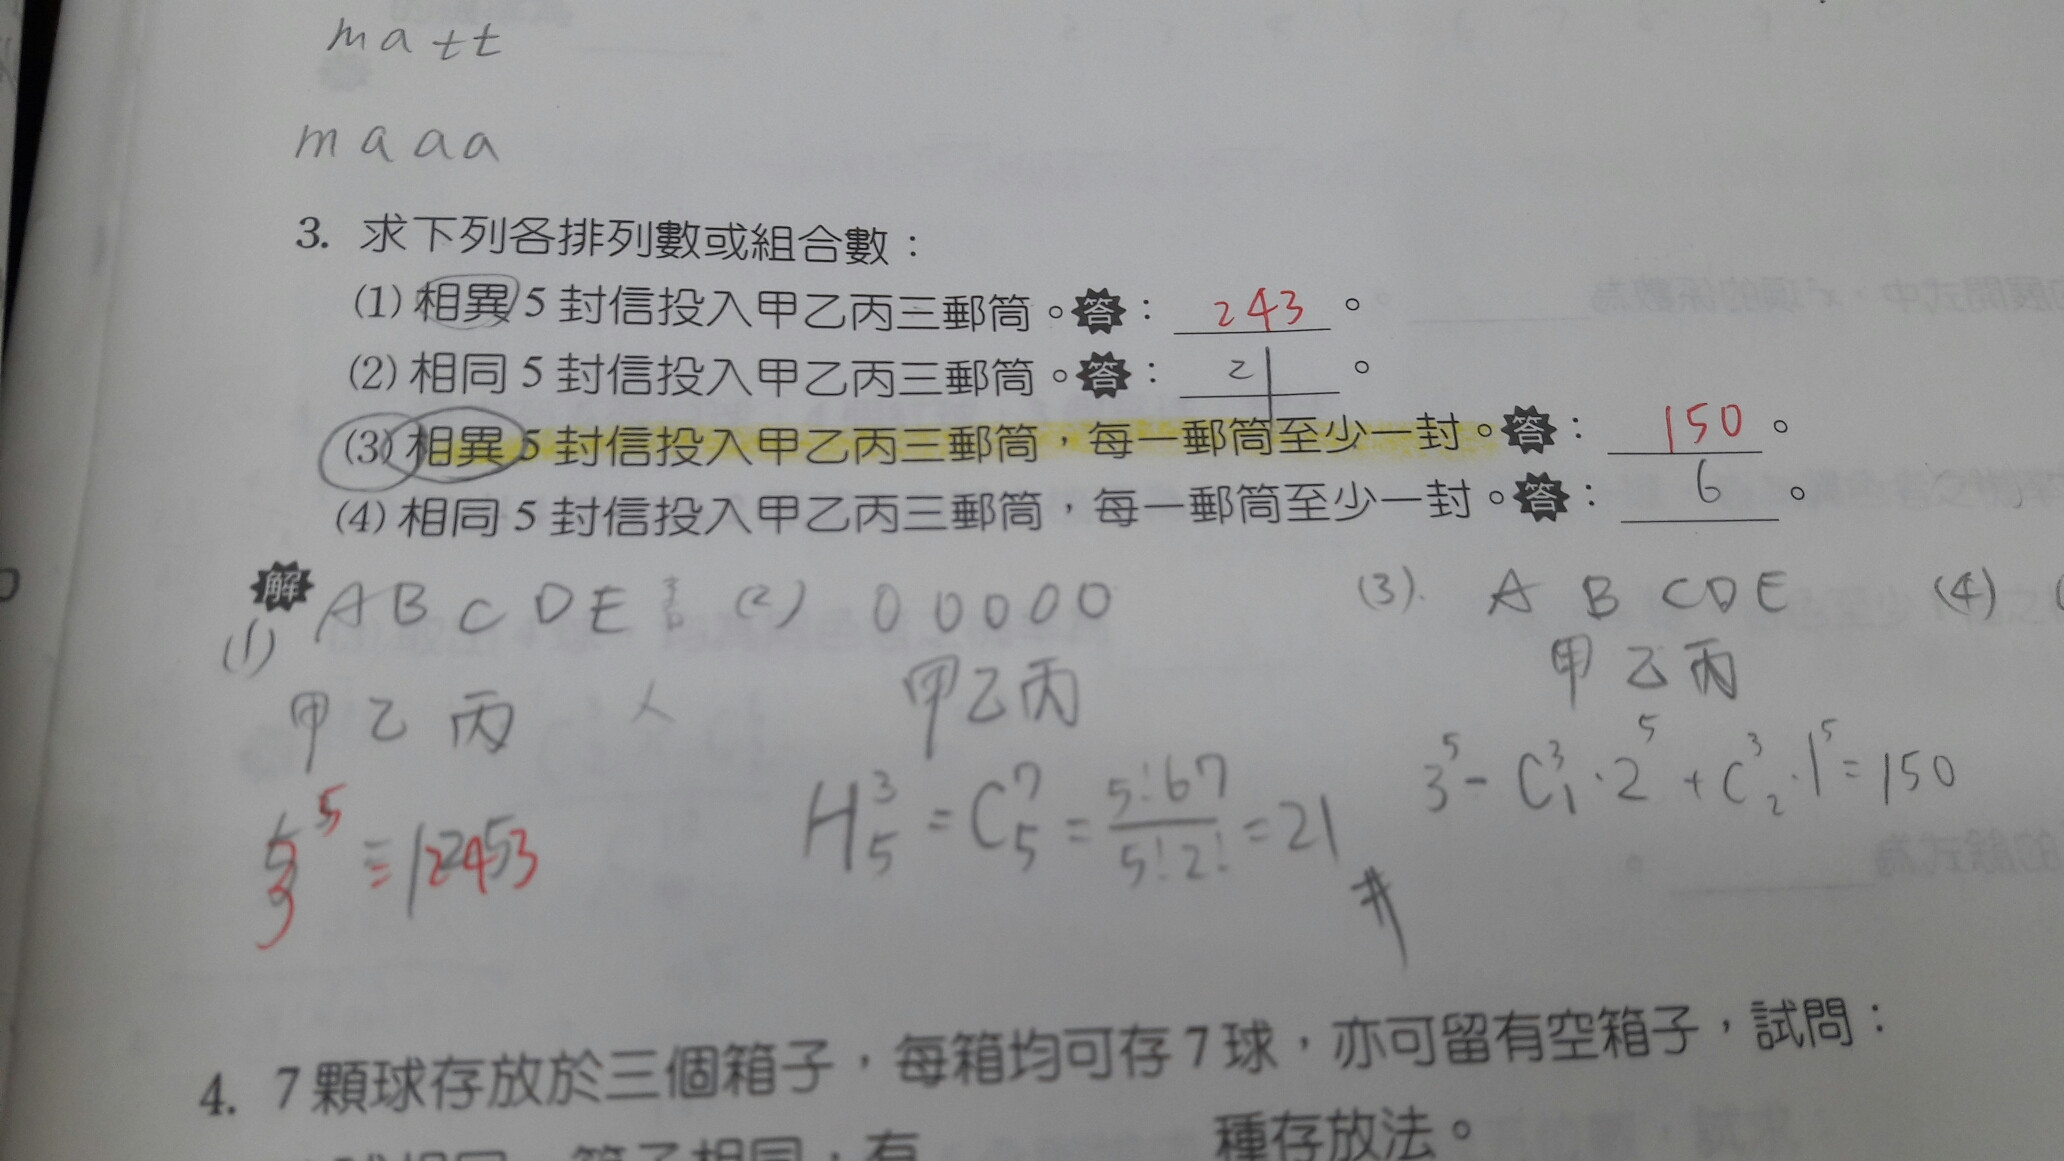 matt
maaa
3. 求下列各排列數或組合數：
(1) 相異 5 封信投入甲乙丙三郵筒。答：243。
(2) 相同 5 封信投入甲乙丙三郵筒。答：21。
(3) 相異 5 封信投入甲乙丙三郵筒，每一郵筒至少一封。答：150。
(4) 相同 5 封信投入甲乙丙三郵筒，每一郵筒至少一封。答：6。
解
(1) A B C D E
甲 乙 丙
3^5 = 243
(2) 0 0 0 0 0
甲乙丙
H^3_5 = C^7_5 = 5!67/5!2! = 21 #
(3). A B C D E
甲 乙 丙
3^5 - C^3_1 · 2^5 + C^3_2 · 1^5 = 150
(4)
4. 7 顆球存放於三個箱子，每箱均可存 7 球，亦可留有空箱子，試問：
種存放法。